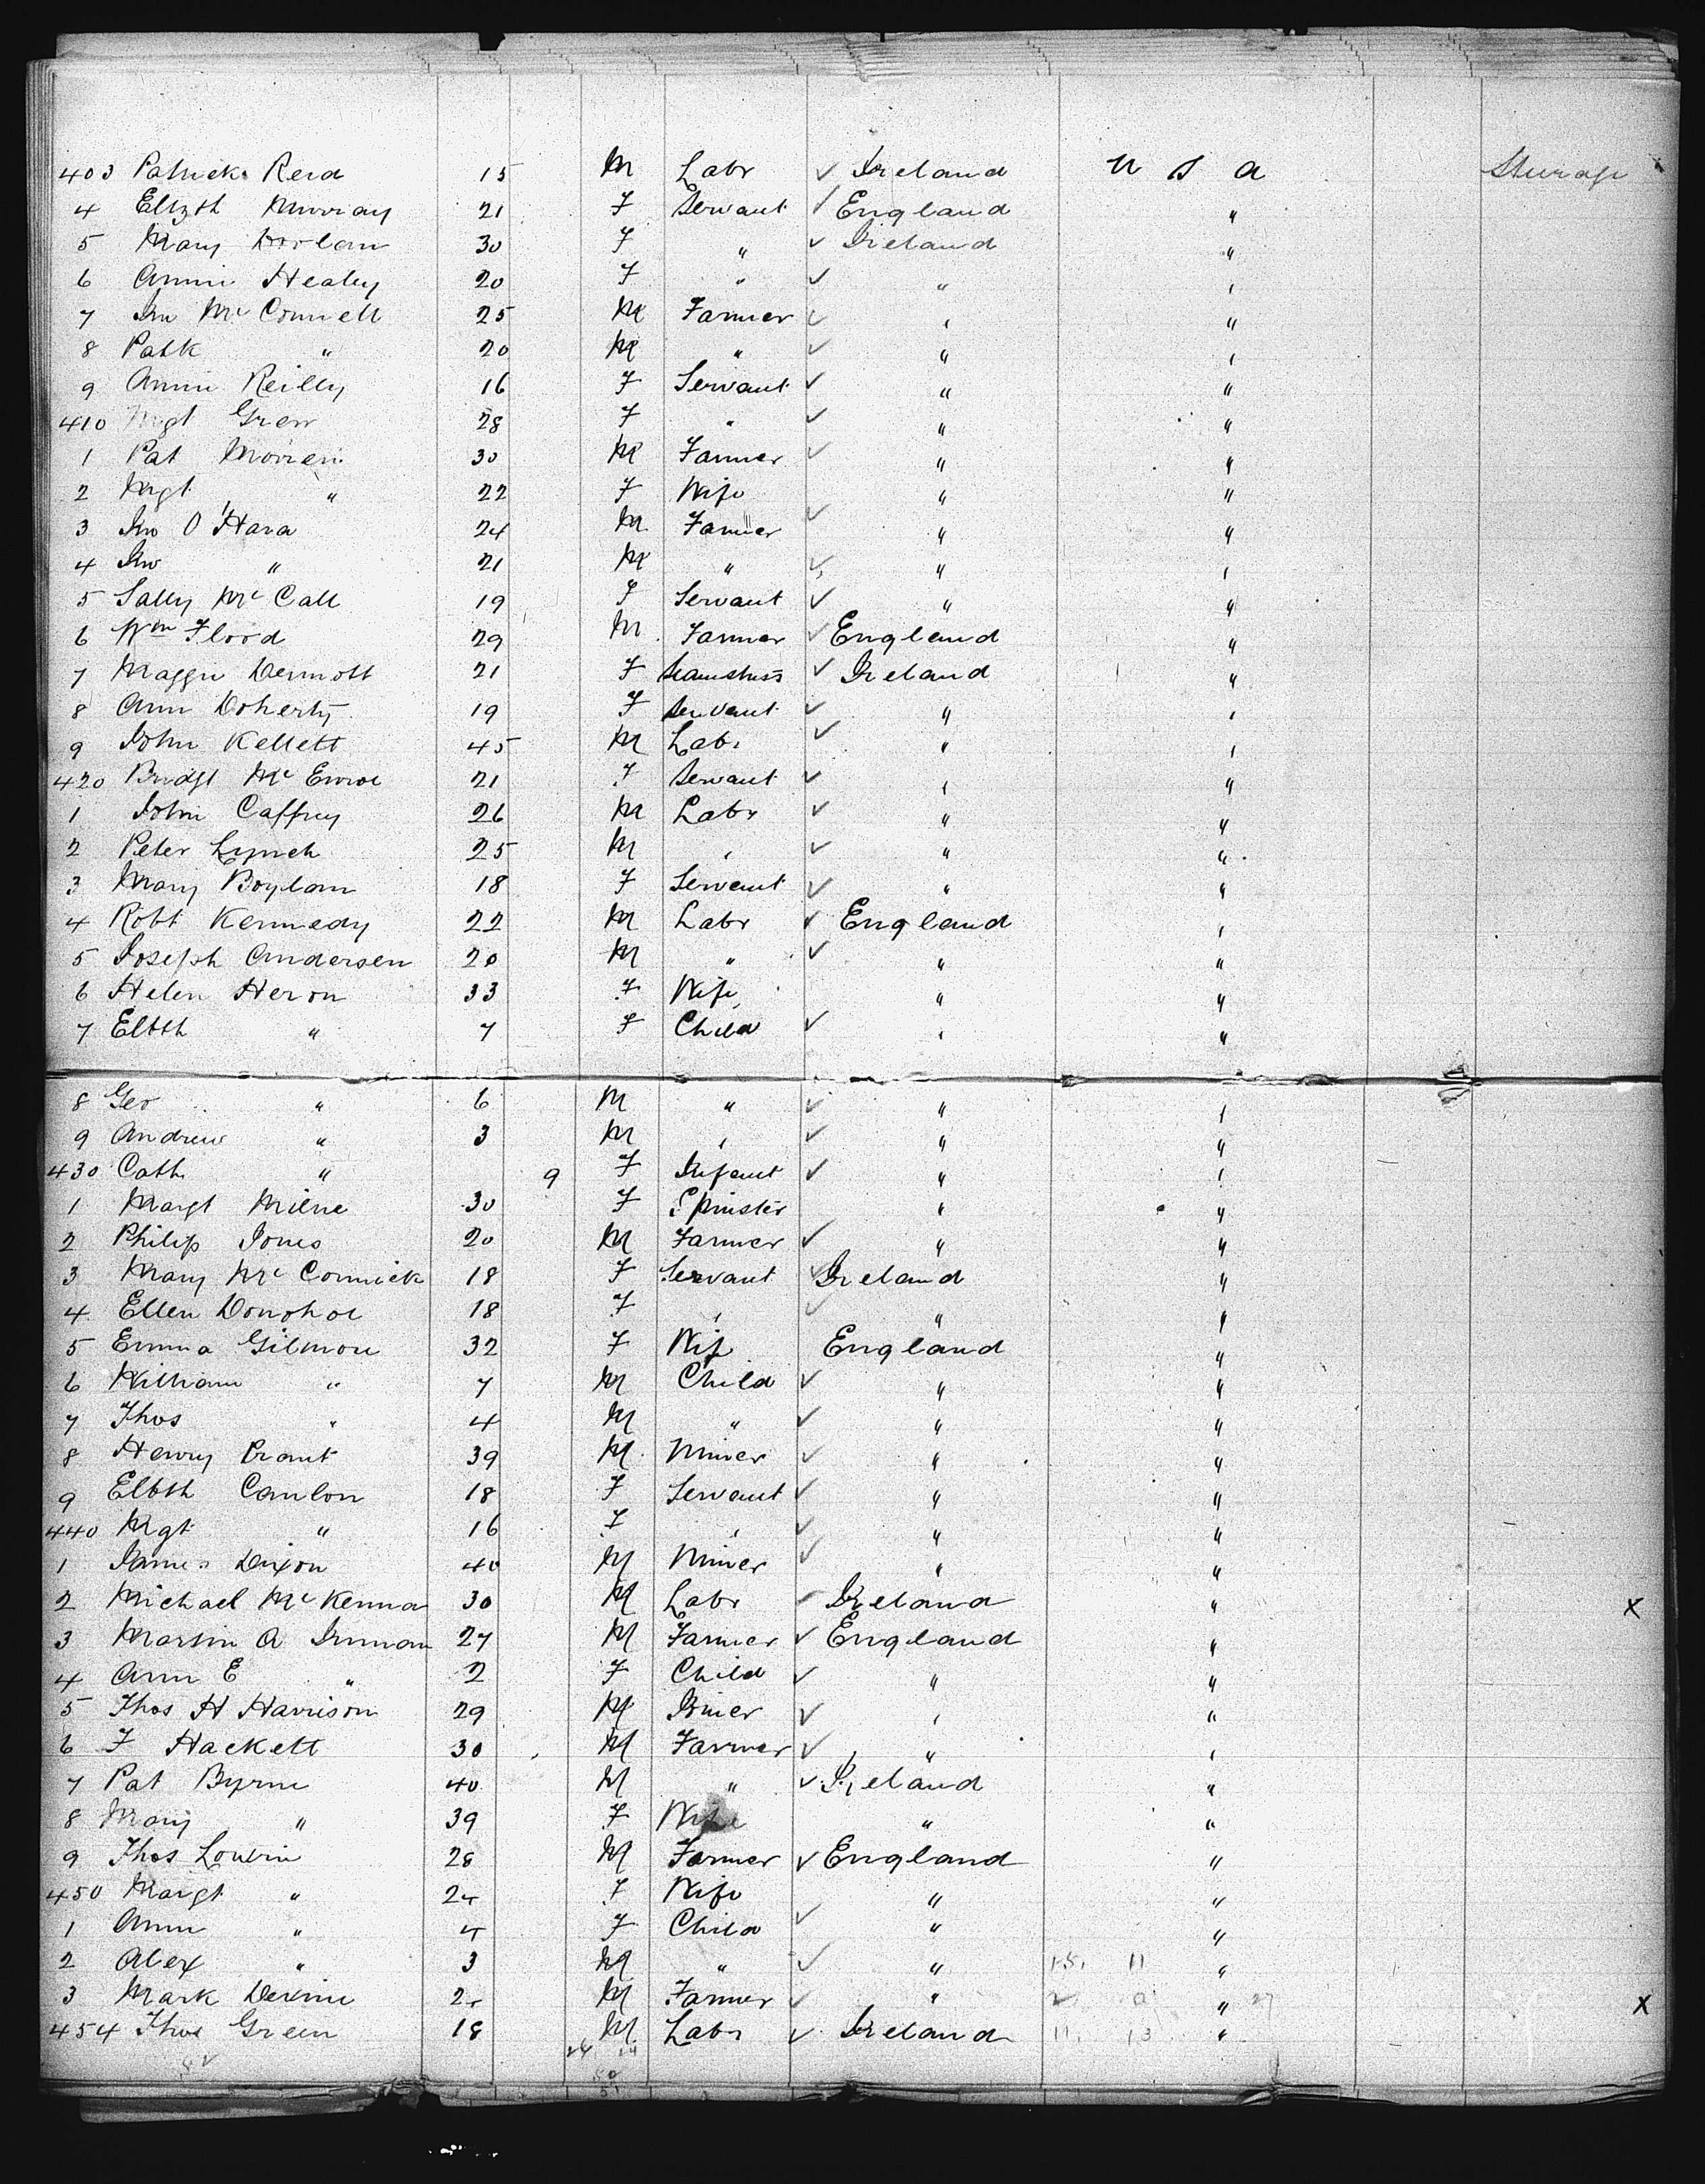 403 Patrick Reid 15 M Labr ✓ Ireland U S A Steerage
4 Elizth Murray 21 F Servant ✓ England "
5 Mary Dolan 30 F " ✓ Ireland "
6 Annie Healey 20 F " ✓ " "
7 Jno McConnell 25 M Farmer ✓ " "
8 Patk " 20 M " ✓ " "
9 Annie Reilly 16 F Servant ✓ " "
410 Mgt Grew 28 F " ✓ " "
1 Pat Morren 30 M Farmer ✓ " "
2 Mgt " 22 F Wife " "
3 Jno O'Hara 24 M Farmer ✓ " "
4 Jno " 21 M " ✓ " "
5 Sally McCall 19 F Servant ✓ " "
6 Wm Flood 29 M Farmer ✓ England "
7 Maggie Dermott 21 F Seamstress ✓ Ireland "
8 Ann Doherty 19 F Servant ✓ " "
9 John Kellett 45 M Labr ✓ " "
420 Bridgt McEnroe 21 F Servant ✓ " "
1 John Caffrey 26 M Labr ✓ " "
2 Peter Lynch 25 M " ✓ " "
3 Mary Boylan 18 F Servant ✓ " "
4 Robt Kennedy 22 M Labr ✓ England "
5 Joseph Andersen 20 M " ✓ " "
6 Helen Heron 33 F Wife " "
7 Elbth " 7 F Child ✓ " "
8 Geo " 6 M " ✓ " "
9 Andrew " 3 M " ✓ " "
430 Cath " 9 F Infant ✓ " "
1 Margt Milne 30 F Spinster " "
2 Philip Jones 20 M Farmer ✓ " "
3 Mary McCormick 18 F Servant ✓ Ireland "
4 Ellen Donohoe 18 F " ✓ " "
5 Emma Gilmore 32 F Wife England "
6 William " 7 M Child ✓ " "
7 Thos " 4 M " ✓ " "
8 Henry Brant 39 M Miner ✓ " "
9 Elbth Canlon 18 F Servant ✓ " "
440 Mgt " 16 F " ✓ " "
1 James Dixon 40 M Miner ✓ " "
2 Michael McKenna 30 M Labr ✓ Ireland " X
3 Martin A Inman 27 M Farmer ✓ England "
4 Ann E " 2 F Child ✓ " "
5 Thos H Harrison 29 M Joiner ✓ " "
6 F Hackett 30 M Farmer ✓ " "
7 Pat Byrne 40 M " ✓ Ireland "
8 Mary " 39 F Wife " "
9 Thos Lowrie 28 M Farmer ✓ England "
450 Margt " 24 F Wife " "
1 Ann " 4 F Child ✓ " "
2 Alex " 3 M " ✓ " 15 11 "
3 Mark Devine 25 M Farmer ✓ " " 27 X
454 Thos Green 18 M Labr ✓ Ireland 11 13 "